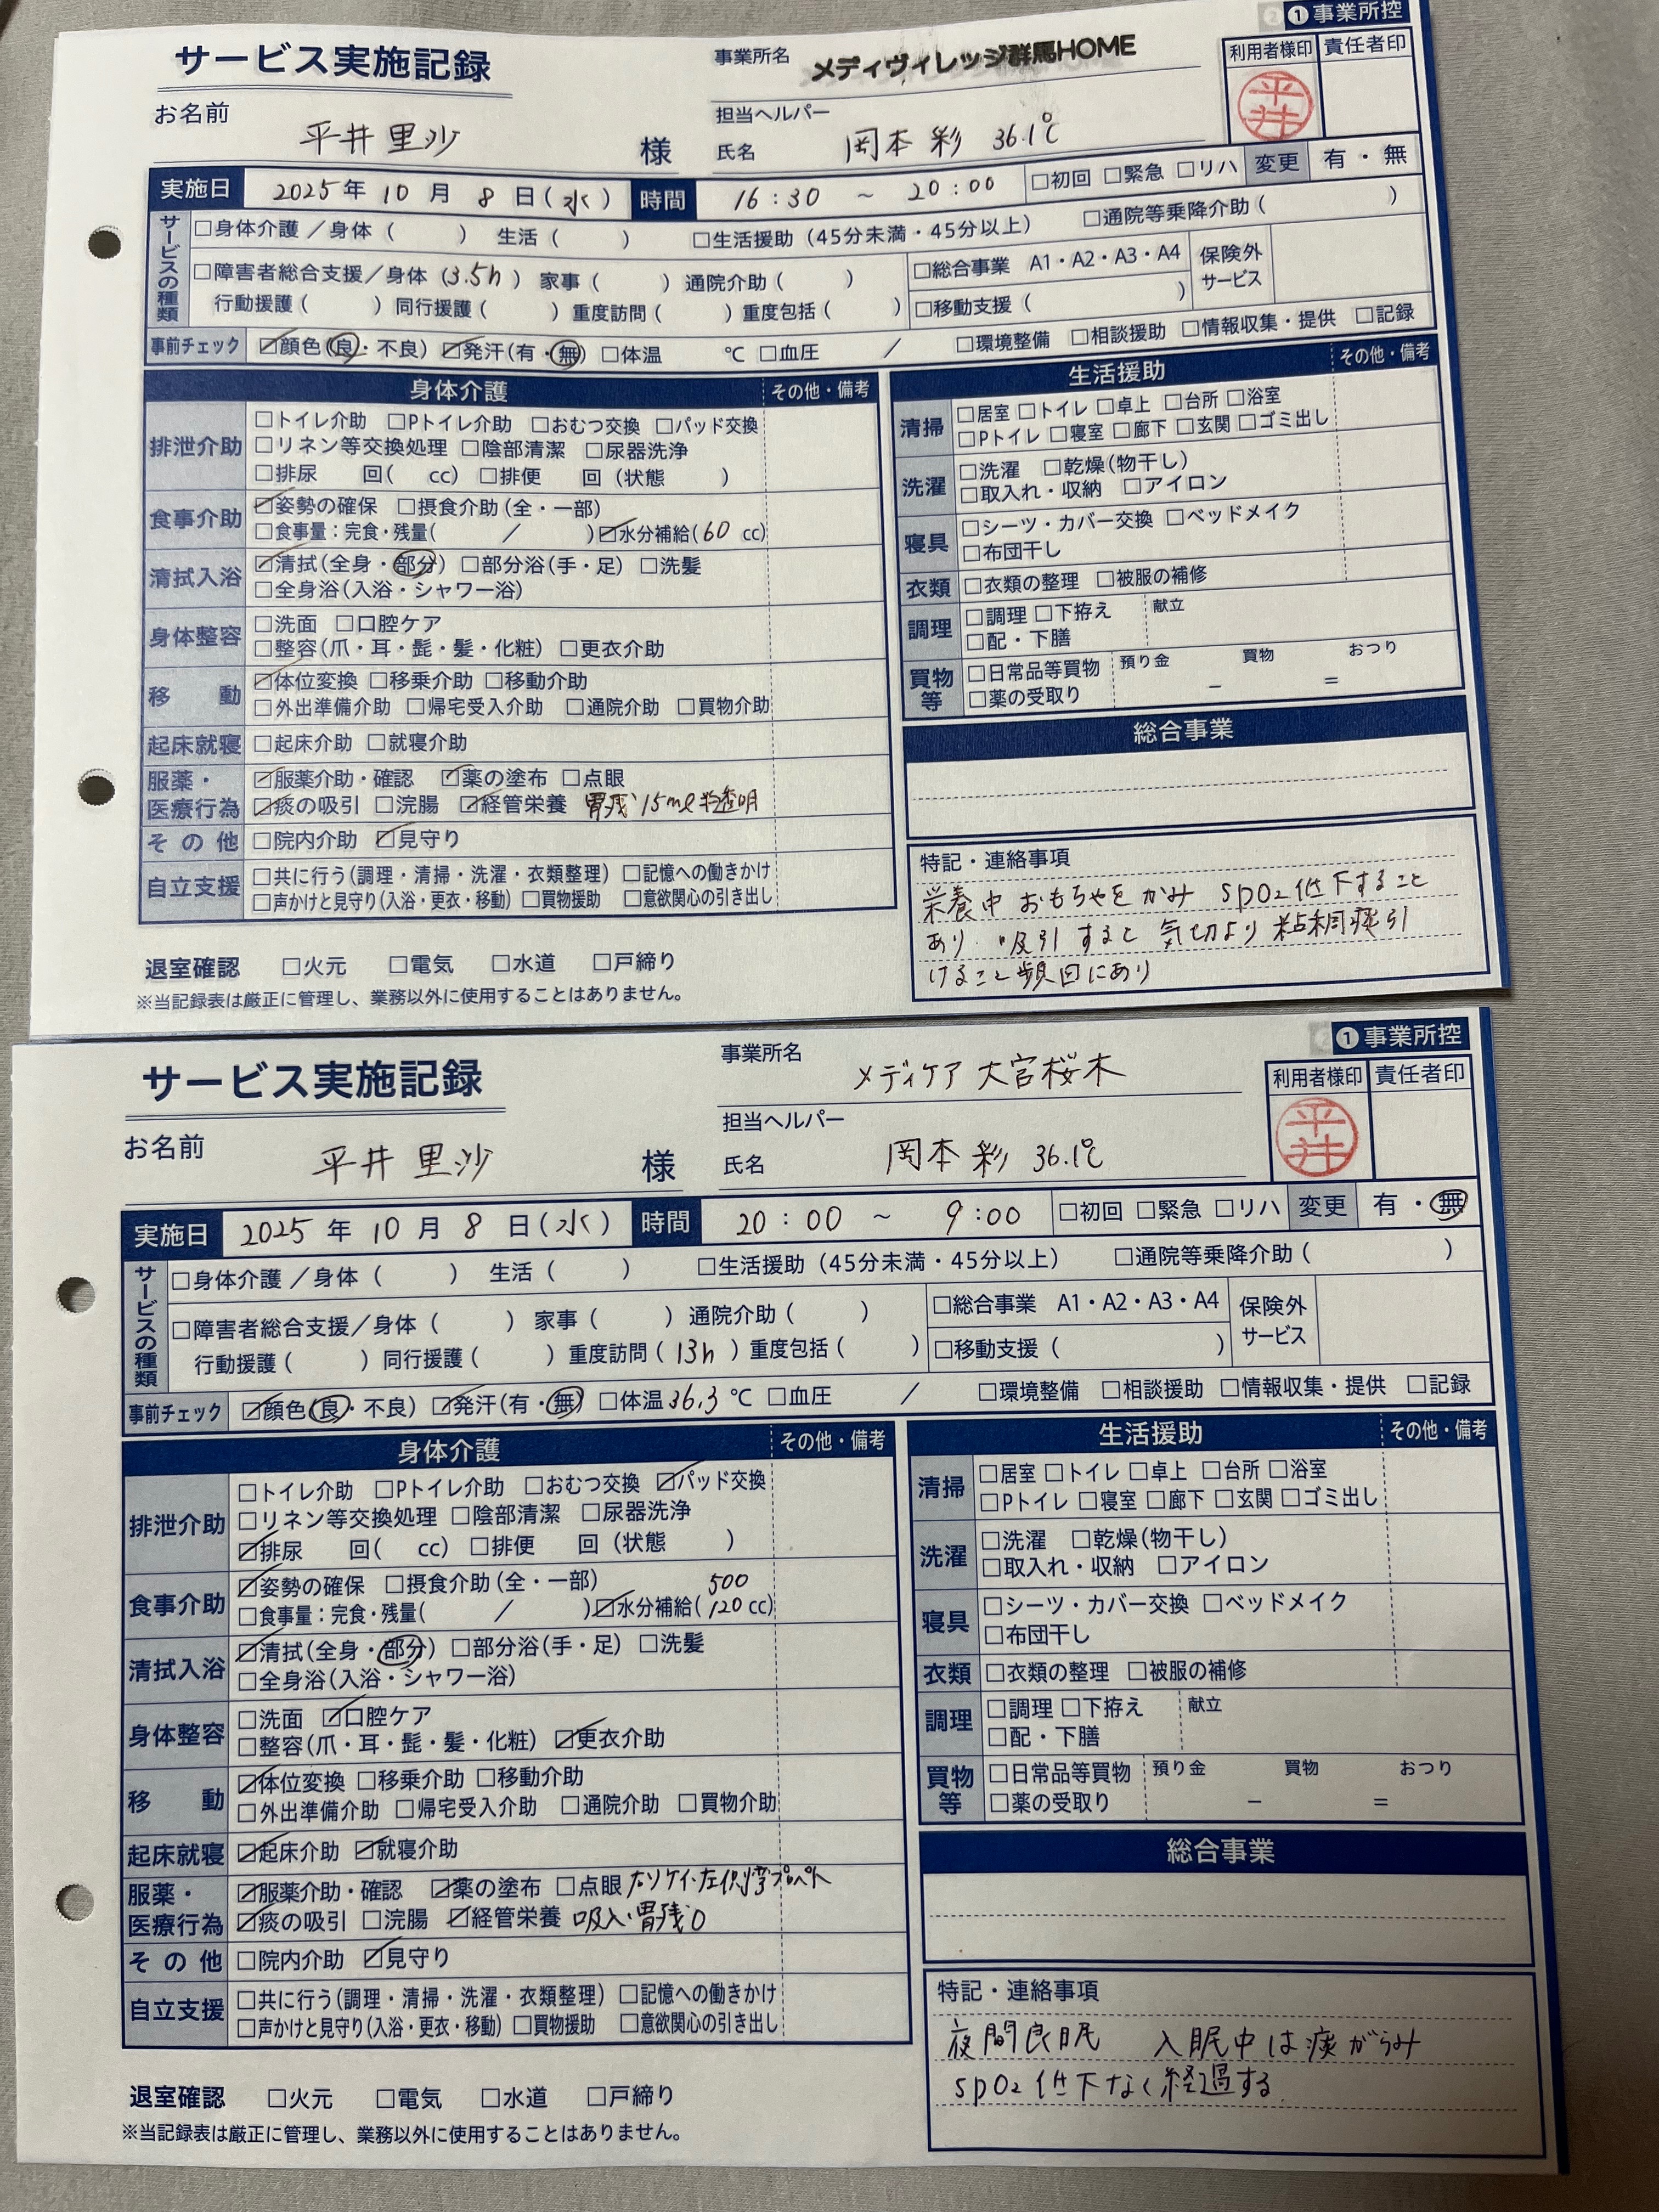 ❶事業所控
サービス実施記録
事業所名 メディヴィレッジ群馬HOME
利用者様印 責任者印
平井
お名前 平井 里沙 様
担当ヘルパー
氏名 岡本 彩 36.1℃
実施日 2025年 10月 8日(水) 時間 16:30 ~ 20:00 □初回 □緊急 □リハ 変更 有・無
サービスの種類
□身体介護/身体( ) 生活( ) □生活援助(45分未満・45分以上) □通院等乗降介助( )
□障害者総合支援/身体(3.5h) 家事( ) 通院介助( ) □総合事業 A1・A2・A3・A4 保険外サービス
行動援護( ) 同行援護( ) 重度訪問( ) 重度包括( ) □移動支援( )
事前チェック ☑顔色(良・不良) ☑発汗(有・無) □体温 ℃ □血圧 / □環境整備 □相談援助 □情報収集・提供 □記録
身体介護 その他・備考
排泄介助 □トイレ介助 □Pトイレ介助 □おむつ交換 □パッド交換
□リネン等交換処理 □陰部清潔 □尿器洗浄
□排尿 回( cc) □排便 回(状態 )
食事介助 ☑姿勢の確保 □摂食介助(全・一部)
□食事量：完食・残量( / ) ☑水分補給(60 cc)
清拭入浴 ☑清拭(全身・部分) □部分浴(手・足) □洗髪
□全身浴(入浴・シャワー浴)
身体整容 □洗面 □口腔ケア
□整容(爪・耳・髭・髪・化粧) □更衣介助
移動 ☑体位変換 □移乗介助 □移動介助
□外出準備介助 □帰宅受入介助 □通院介助 □買物介助
起床就寝 □起床介助 □就寝介助
服薬・医療行為 ☑服薬介助・確認 ☑薬の塗布 □点眼
☑痰の吸引 □浣腸 ☑経管栄養 胃残 15ml 半透明
その他 □院内介助 ☑見守り
自立支援 □共に行う(調理・清掃・洗濯・衣類整理) □記憶への働きかけ
□声かけと見守り(入浴・更衣・移動) □買物援助 □意欲関心の引き出し
退室確認 □火元 □電気 □水道 □戸締り
※当記録表は厳正に管理し、業務以外に使用することはありません。
生活援助 その他・備考
清掃 □居室 □トイレ □卓上 □台所 □浴室
□Pトイレ □寝室 □廊下 □玄関 □ゴミ出し
洗濯 □洗濯 □乾燥(物干し)
□取入れ・収納 □アイロン
寝具 □シーツ・カバー交換 □ベッドメイク
□布団干し
衣類 □衣類の整理 □被服の補修
調理 □調理 □下拵え 献立
□配・下膳
買物等 □日常品等買物 預り金 買物 おつり
□薬の受取り − =
総合事業
特記・連絡事項
栄養中 おもちゃを かみ SpO2低下すること
あり. 吸引すると 気切より 粘稠痰引
けること頻回にあり
❶事業所控
サービス実施記録
事業所名 メディケア 大宮桜木
利用者様印 責任者印
平井
お名前 平井 里沙 様
担当ヘルパー
氏名 岡本 彩 36.1℃
実施日 2025年 10月 8日(水) 時間 20:00 ~ 9:00 □初回 □緊急 □リハ 変更 有・無
サービスの種類
□身体介護/身体( ) 生活( ) □生活援助(45分未満・45分以上) □通院等乗降介助( )
□障害者総合支援/身体( ) 家事( ) 通院介助( ) □総合事業 A1・A2・A3・A4 保険外サービス
行動援護( ) 同行援護( ) 重度訪問(13h) 重度包括( ) □移動支援( )
事前チェック ☑顔色(良・不良) ☑発汗(有・無) □体温36.3℃ □血圧 / □環境整備 □相談援助 □情報収集・提供 □記録
身体介護 その他・備考
排泄介助 □トイレ介助 □Pトイレ介助 □おむつ交換 ☑パッド交換
□リネン等交換処理 □陰部清潔 □尿器洗浄
☑排尿 回( cc) □排便 回(状態 )
食事介助 ☑姿勢の確保 □摂食介助(全・一部) 500
□食事量：完食・残量( / ) ☑水分補給(120 cc)
清拭入浴 ☑清拭(全身・部分) □部分浴(手・足) □洗髪
□全身浴(入浴・シャワー浴)
身体整容 □洗面 ☑口腔ケア
□整容(爪・耳・髭・髪・化粧) ☑更衣介助
移動 ☑体位変換 □移乗介助 □移動介助
□外出準備介助 □帰宅受入介助 □通院介助 □買物介助
起床就寝 ☑起床介助 ☑就寝介助
服薬・医療行為 ☑服薬介助・確認 ☑薬の塗布 □点眼 プロペト
☑痰の吸引 □浣腸 ☑経管栄養 吸入・胃残0
その他 □院内介助 ☑見守り
自立支援 □共に行う(調理・清掃・洗濯・衣類整理) □記憶への働きかけ
□声かけと見守り(入浴・更衣・移動) □買物援助 □意欲関心の引き出し
退室確認 □火元 □電気 □水道 □戸締り
※当記録表は厳正に管理し、業務以外に使用することはありません。
生活援助 その他・備考
清掃 □居室 □トイレ □卓上 □台所 □浴室
□Pトイレ □寝室 □廊下 □玄関 □ゴミ出し
洗濯 □洗濯 □乾燥(物干し)
□取入れ・収納 □アイロン
寝具 □シーツ・カバー交換 □ベッドメイク
□布団干し
衣類 □衣類の整理 □被服の補修
調理 □調理 □下拵え 献立
□配・下膳
買物等 □日常品等買物 預り金 買物 おつり
□薬の受取り − =
総合事業
特記・連絡事項
夜間良眠 入眠中は痰がらみ
SpO2低下なく経過する.